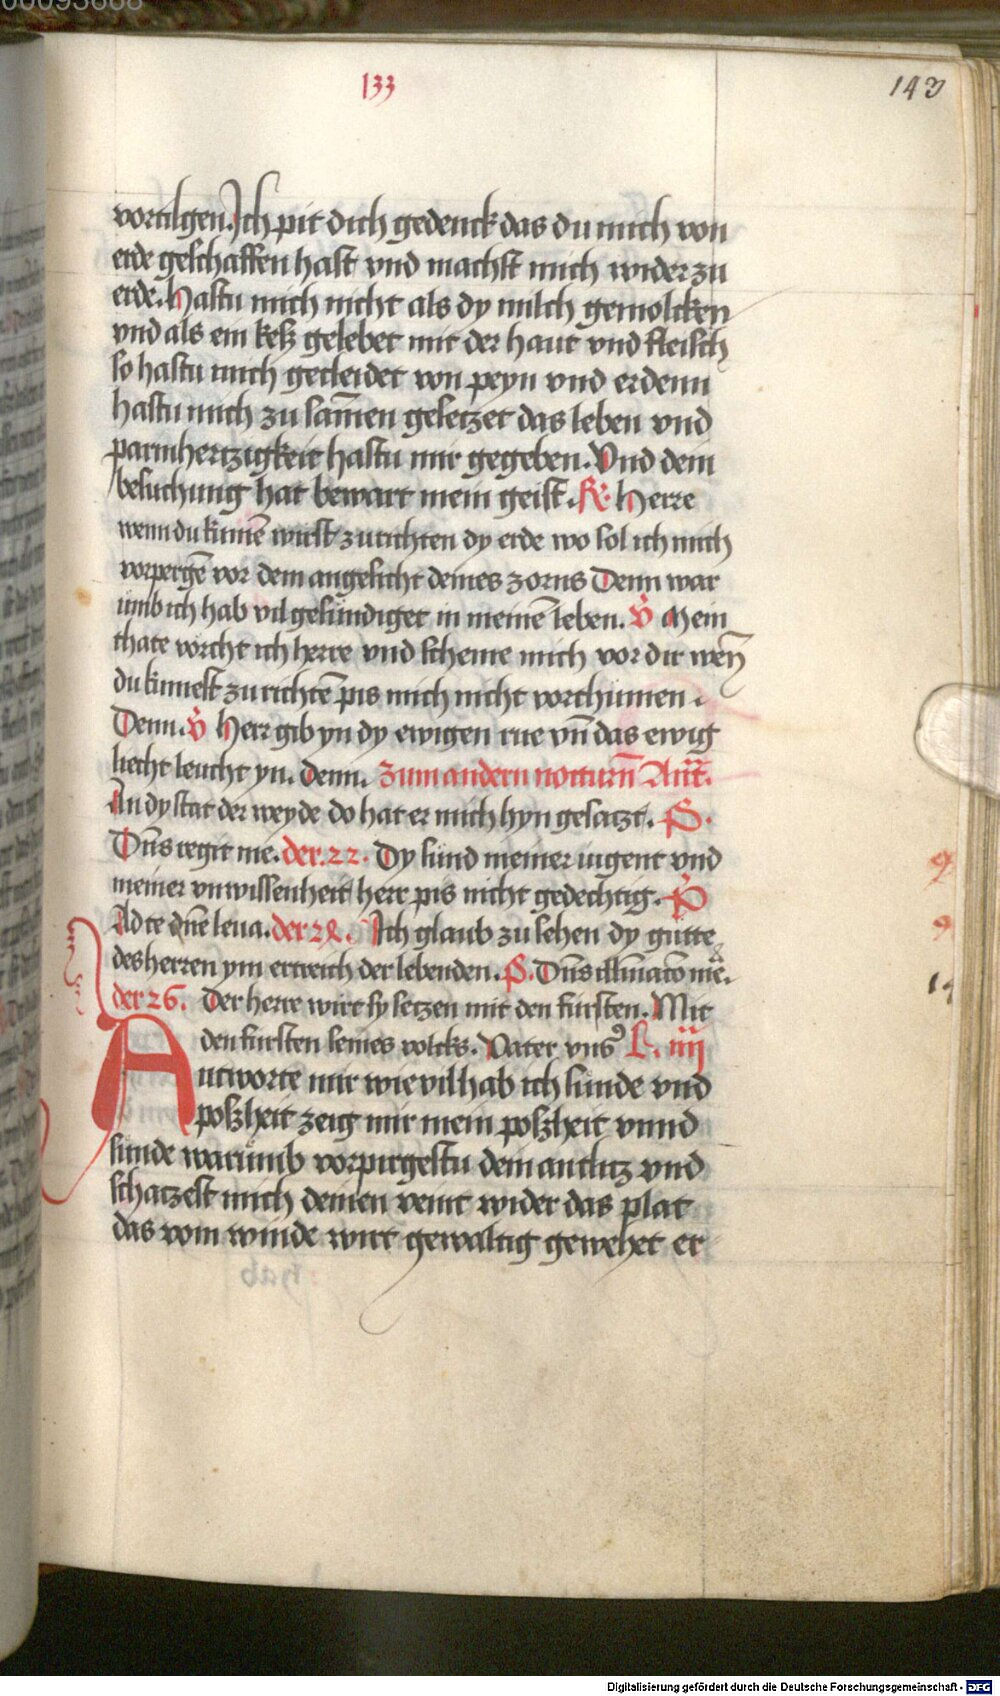 00093608
133
143
vortilgen. Ich pit dich gedenck das du mich von
erde geschaffen hast vnd machst mich wider zu
erde. Hastu mich nicht als dy milch gemolcken
vnd als ein kesz gelebet mit der haut vnd fleisch
so hastu mich gecleidet von peyn vnd erdenn
hastu mich zu sam̄en gesetzet das leben vnd
parmhertzigkeit hastu mir gegeben. Vnd dein
besuchung hat bewart mein geist. R̃. Herre
wenn du kumē wirst zu richten dy erde wo sol ich mich
vorpergē vor dem angesicht deines zorns Denn war
umb ich hab vil gesundiget in meinē leben. V̊ Mein
thate vorcht ich herre vnd scheme mich vor dir wen̄
du kumest zu richtē pis mich nicht vorthumen.
Denn. V̊ Herr gib yn dy ewigen rue vn̄ das ewig
liecht leucht yn. Denn. Zum andern notturn̄ Ant̄.
An dy stat der weyde do hat er mich hyn gesatzt. P̃.
Dn̄s regit me. der. 22. Dy sund meiner iugent vnd
meiner vnwissenheit herr pis nicht gedechtig. P̃
Ad te dn̄e leua. der 24. Ich glaub zu sehen dy gutte
des herren ym ertreich der lebenden. P̃. Dn̄s illūiaco͞ me͞.
der 26. Der herre wirt sy setzen mit den fursten. Mit
den fursten seines volcks. Vater vns9 L. iiij
Antworte mir wie vil hab ich sunde vnd
poszheit zeig mir mein poszheit vnnd
sunde warumb vorpirgestu dein antlitz vnd
schatzest mich deinen veint wider das plat
das vom winde wirt gewaltig gewehet er
Digitalisierung gefördert durch die Deutsche Forschungsgemeinschaft - DFG